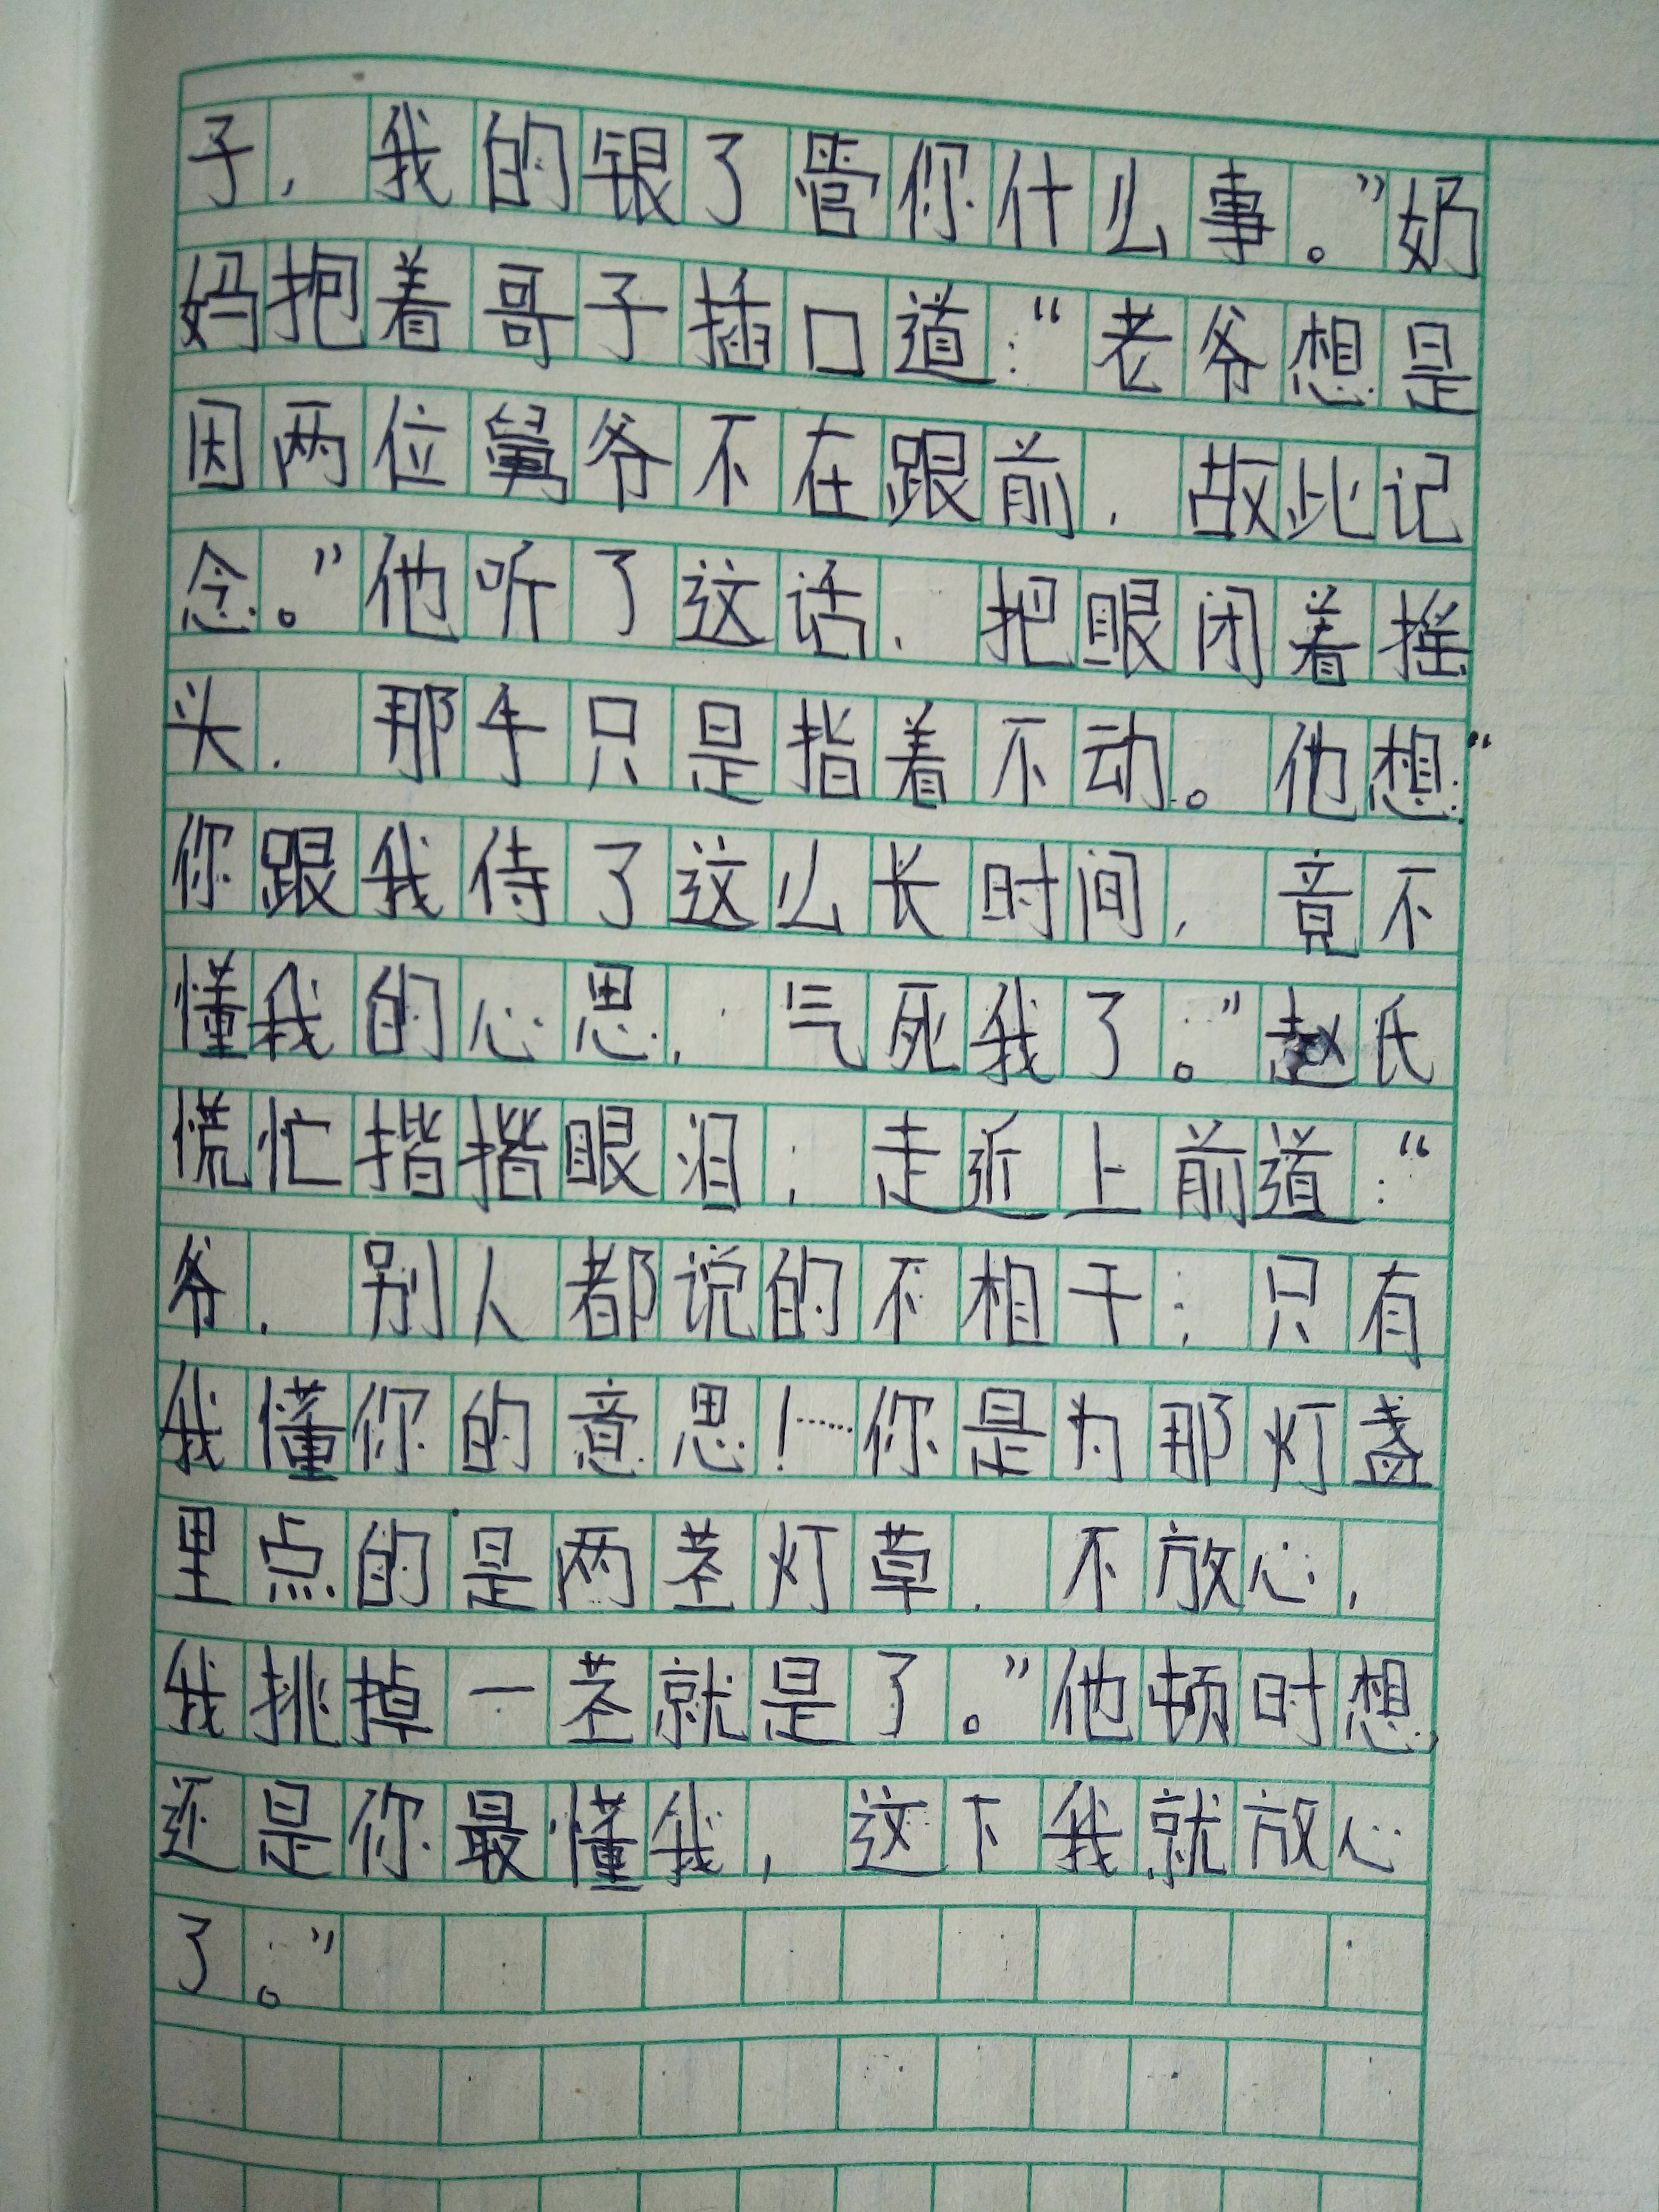 子，我的银了管你什么事。”奶
妈抱着哥子插口道：“老爷想是
因两位舅爷不在跟前，故此记
念。”他听了这话，把眼闭着摇
头，那手只是指着不动。他想：“
你跟我待了这么长时间，竟不
懂我的心思，气死我了。”赵氏
慌忙揩揩眼泪，走近上前道：“
爷，别人都说的不相干；只有
我懂你的意思！……你是为那灯盏
里点的是两茎灯草，不放心，
我挑掉一茎就是了。”他顿时想，
还是你最懂我，这下我就放心
了。”